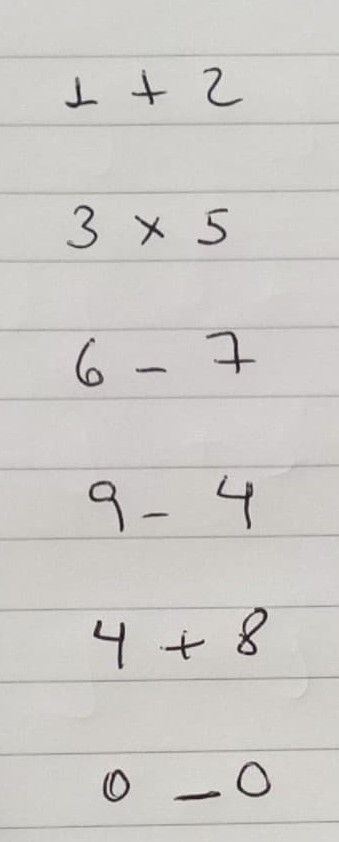 1 + 2
3 × 5
6 - 7
9 - 4
4 + 8
0 - 0